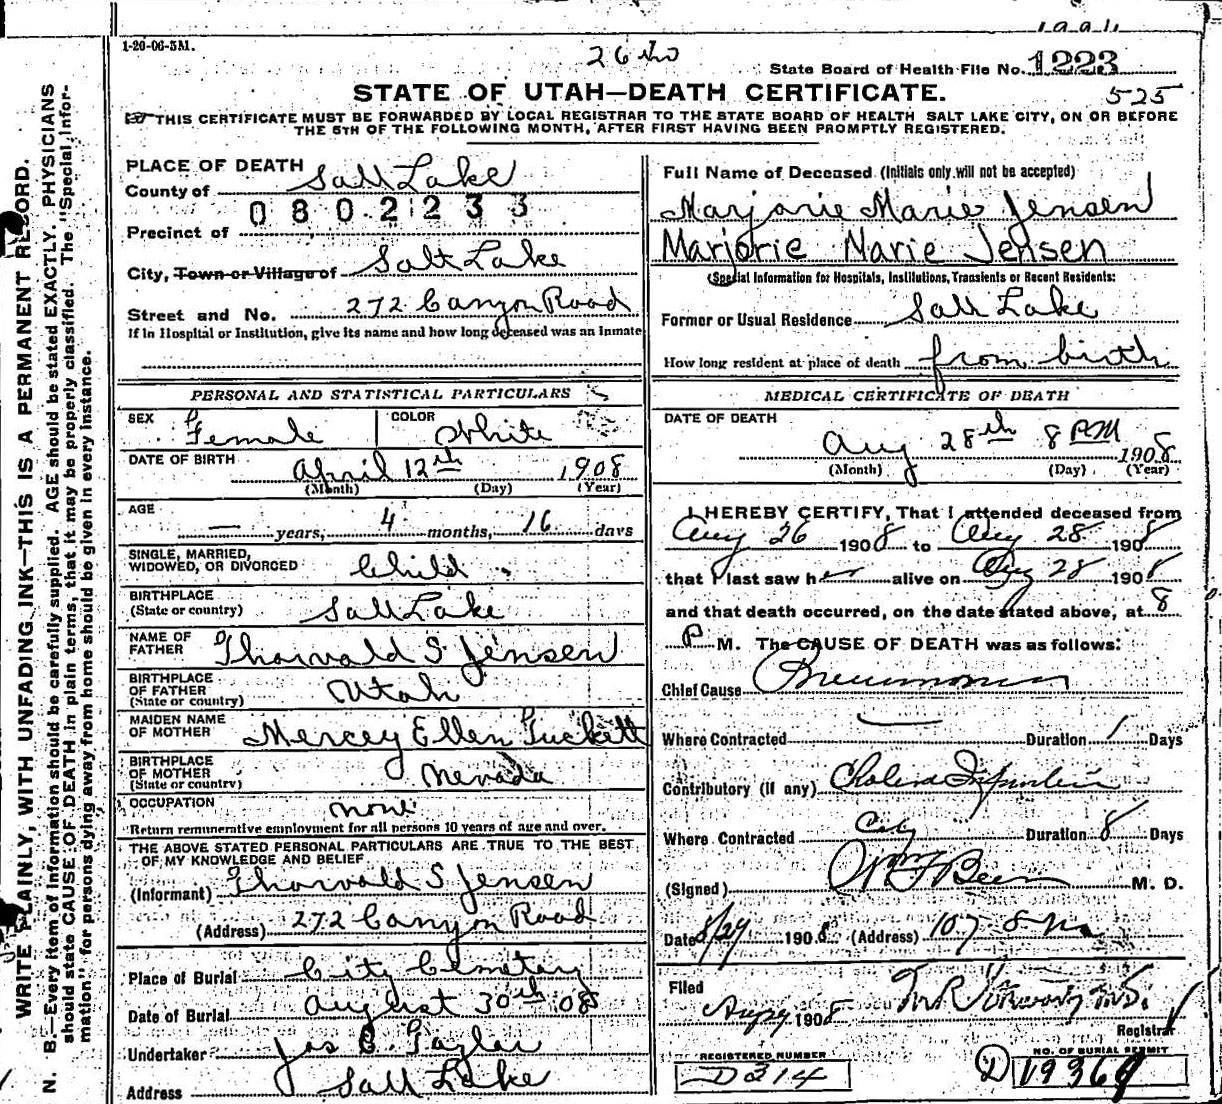 1-20-06-5M.
State Board of Health File No. 1223
STATE OF UTAH—DEATH CERTIFICATE.
525
THIS CERTIFICATE MUST BE FORWARDED BY LOCAL REGISTRAR TO THE STATE BOARD OF HEALTH SALT LAKE CITY, ON OR BEFORE
THE 5TH OF THE FOLLOWING MONTH, AFTER FIRST HAVING BEEN PROMPTLY REGISTERED.
WRITE PLAINLY, WITH UNFADING INK—THIS IS A PERMANENT RECORD.
N. B.—Every item of information should be carefully supplied. AGE should be stated EXACTLY. PHYSICIANS
should state CAUSE OF DEATH in plain terms, that it may be properly classified. The "Special Infor-
mation" for persons dying away from home should be given in every instance.
PLACE OF DEATH
County of Salt Lake
0802233
Precinct of
City, Town or Village of Salt Lake
Street and No. 272 Canyon Road
If in Hospital or Institution, give its name and how long deceased was an Inmate
PERSONAL AND STATISTICAL PARTICULARS
SEX Female COLOR White
DATE OF BIRTH April 12th 1908
(Month) (Day) (Year)
AGE — years, 4 months, 16 days
SINGLE, MARRIED,
WIDOWED, OR DIVORCED Child
BIRTHPLACE
(State or country) Salt Lake
NAME OF
FATHER Thorvald S. Jensen
BIRTHPLACE
OF FATHER
(State or country) Utah
MAIDEN NAME
OF MOTHER Mercey Ellen Tuckett
BIRTHPLACE
OF MOTHER
(State or country) Nevada
OCCUPATION none
Return remunerative employment for all persons 10 years of age and over.
THE ABOVE STATED PERSONAL PARTICULARS ARE TRUE TO THE BEST
OF MY KNOWLEDGE AND BELIEF
(Informant) Thorvald S Jensen
(Address) 272 Canyon Road
Place of Burial City Cemetery
Date of Burial August 30th 08
Undertaker Jos E. Taylor
Address Salt Lake
Full Name of Deceased (Initials only will not be accepted)
Marjorie Marie Jensen
Marjorie Marie Jensen
(Special Information for Hospitals, Institutions, Transients or Recent Residents:
Former or Usual Residence Salt Lake
How long resident at place of death from birth
MEDICAL CERTIFICATE OF DEATH
DATE OF DEATH
Aug 28th 8 PM 1908
(Month) (Day) (Year)
I HEREBY CERTIFY, That I attended deceased from
Aug 26 1908 to Aug 28 1908
that I last saw her alive on Aug 28 1908
and that death occurred, on the date stated above, at 8
P M. The CAUSE OF DEATH was as follows:
Chief Cause Pneumonia
Where Contracted — Duration 1 Days
Contributory (if any) Cholera Infantum
Where Contracted City Duration 8 Days
(Signed) Beer M. D.
Date 8/29 1908 (Address) 107
Filed
1908
Registrar
REGISTERED NUMBER
D 314
NO. OF BURIAL PERMIT
D 19369